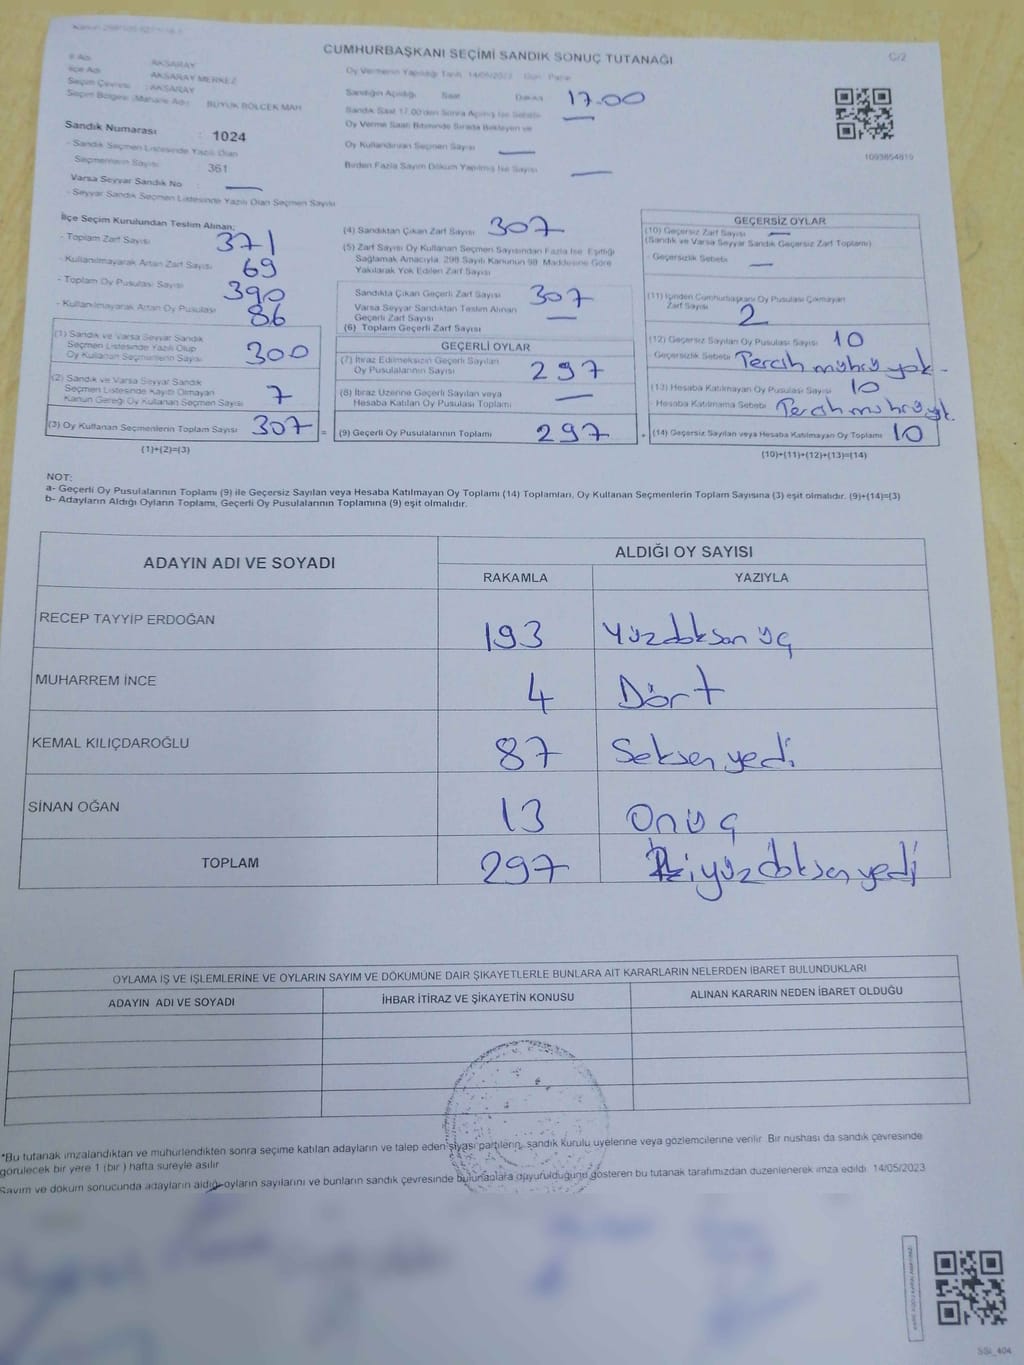 CUMHURBAŞKANI SEÇİMİ SANDIK SONUÇ TUTANAĞI
C/2
İl Adı : AKSARAY
İlçe Adı : AKSARAY MERKEZ
Seçim Çevresi : AKSARAY
Seçim Bölgesi (Mahalle Adı) : BÜYÜK BÖLCEK MAH
Sandık Numarası : 1024
- Sandık Seçmen Listesinde Yazılı Olan
Seçmenlerin Sayısı : 361
Varsa Seyyar Sandık No : —
- Seyyar Sandık Seçmen Listesinde Yazılı Olan Seçmen Sayısı
Oy Vermenin Yapıldığı Tarih : 14/05/2023 Gün : Pazar
Sandığın Açıldığı Saat Dakika 17.00
Sandık Saat 17.00'den Sonra Açılmış İse Sebebi —
Oy Verme Saati Bitiminde Sırada Bekleyen ve
Oy Kullandırılan Seçmen Sayısı —
Birden Fazla Sayım Döküm Yapılmış İse Sayısı —
1093854819
İlçe Seçim Kurulundan Teslim Alınan;
- Toplam Zarf Sayısı 371
- Kullanılmayarak Artan Zarf Sayısı 69
- Toplam Oy Pusulası Sayısı 390
- Kullanılmayarak Artan Oy Pusulası 86
(1) Sandık ve Varsa Seyyar Sandık
Seçmen Listesinde Yazılı Olup
Oy Kullanan Seçmenlerin Sayısı 300
(2) Sandık ve Varsa Seyyar Sandık
Seçmen Listesinde Kayıtlı Olmayan
Kanun Gereği Oy Kullanan Seçmen Sayısı 7
(3) Oy Kullanan Seçmenlerin Toplam Sayısı 307 =
(1)+(2)=(3)
(4) Sandıktan Çıkan Zarf Sayısı 307
(5) Zarf Sayısı Oy Kullanan Seçmen Sayısından Fazla İse, Eşitliği
Sağlamak Amacıyla, 298 Sayılı Kanunun 98. Maddesine Göre
Yakılarak Yok Edilen Zarf Sayısı
Sandıkta Çıkan Geçerli Zarf Sayısı 307
Varsa Seyyar Sandıktan Teslim Alınan
Geçerli Zarf Sayısı —
(6) Toplam Geçerli Zarf Sayısı
GEÇERLİ OYLAR
(7) İtiraz Edilmeksizin Geçerli Sayılan
Oy Pusulalarının Sayısı 297
(8) İtiraz Üzerine Geçerli Sayılan veya
Hesaba Katılan Oy Pusulası Toplamı —
(9) Geçerli Oy Pusulalarının Toplamı 297 +
GEÇERSİZ OYLAR
(10) Geçersiz Zarf Sayısı —
(Sandık ve Varsa Seyyar Sandık Geçersiz Zarf Toplamı)
- Geçersizlik Sebebi —
(11) İçinden Cumhurbaşkanı Oy Pusulası Çıkmayan
Zarf Sayısı 2
(12) Geçersiz Sayılan Oy Pusulası Sayısı 10
Geçersizlik Sebebi Tercih mührü yok -
(13) Hesaba Katılmayan Oy Pusulası Sayısı 10
- Hesaba Katılmama Sebebi Tercih mührü yok.
(14) Geçersiz Sayılan veya Hesaba Katılmayan Oy Toplamı 10
(10)+(11)+(12)+(13)=(14)
NOT:
a- Geçerli Oy Pusulalarının Toplamı (9) ile Geçersiz Sayılan veya Hesaba Katılmayan Oy Toplamı (14) Toplamları, Oy Kullanan Seçmenlerin Toplam Sayısına (3) eşit olmalıdır. (9)+(14)=(3)
b- Adayların Aldığı Oyların Toplamı, Geçerli Oy Pusulalarının Toplamına (9) eşit olmalıdır.
ADAYIN ADI VE SOYADI
ALDIĞI OY SAYISI
RAKAMLA YAZIYLA
RECEP TAYYİP ERDOĞAN 193 Yüzdoksan üç
MUHARREM İNCE 4 Dört
KEMAL KILIÇDAROĞLU 87 Seksen yedi
SİNAN OĞAN 13 Onüç
TOPLAM 297 İkiyüzdoksan yedi
OYLAMA İŞ VE İŞLEMLERİNE VE OYLARIN SAYIM VE DÖKÜMÜNE DAİR ŞİKAYETLERLE BUNLARA AİT KARARLARIN NELERDEN İBARET BULUNDUKLARI
ADAYIN ADI VE SOYADI İHBAR İTİRAZ VE ŞİKAYETİN KONUSU ALINAN KARARIN NEDEN İBARET OLDUĞU
*Bu tutanak imzalandıktan ve mühürlendikten sonra seçime katılan adayların ve talep eden siyasi partilerin, sandık kurulu üyelerine veya gözlemcilerine verilir. Bir nüshası da sandık çevresinde
görülecek bir yere 1 (bir) hafta süreyle asılır.
Sayım ve döküm sonucunda adayların aldığı oyların sayılarını ve bunların sandık çevresinde bulunanlara duyurulduğunu gösteren bu tutanak tarafımızdan düzenlenerek imza edildi. 14/05/2023
SSI_404